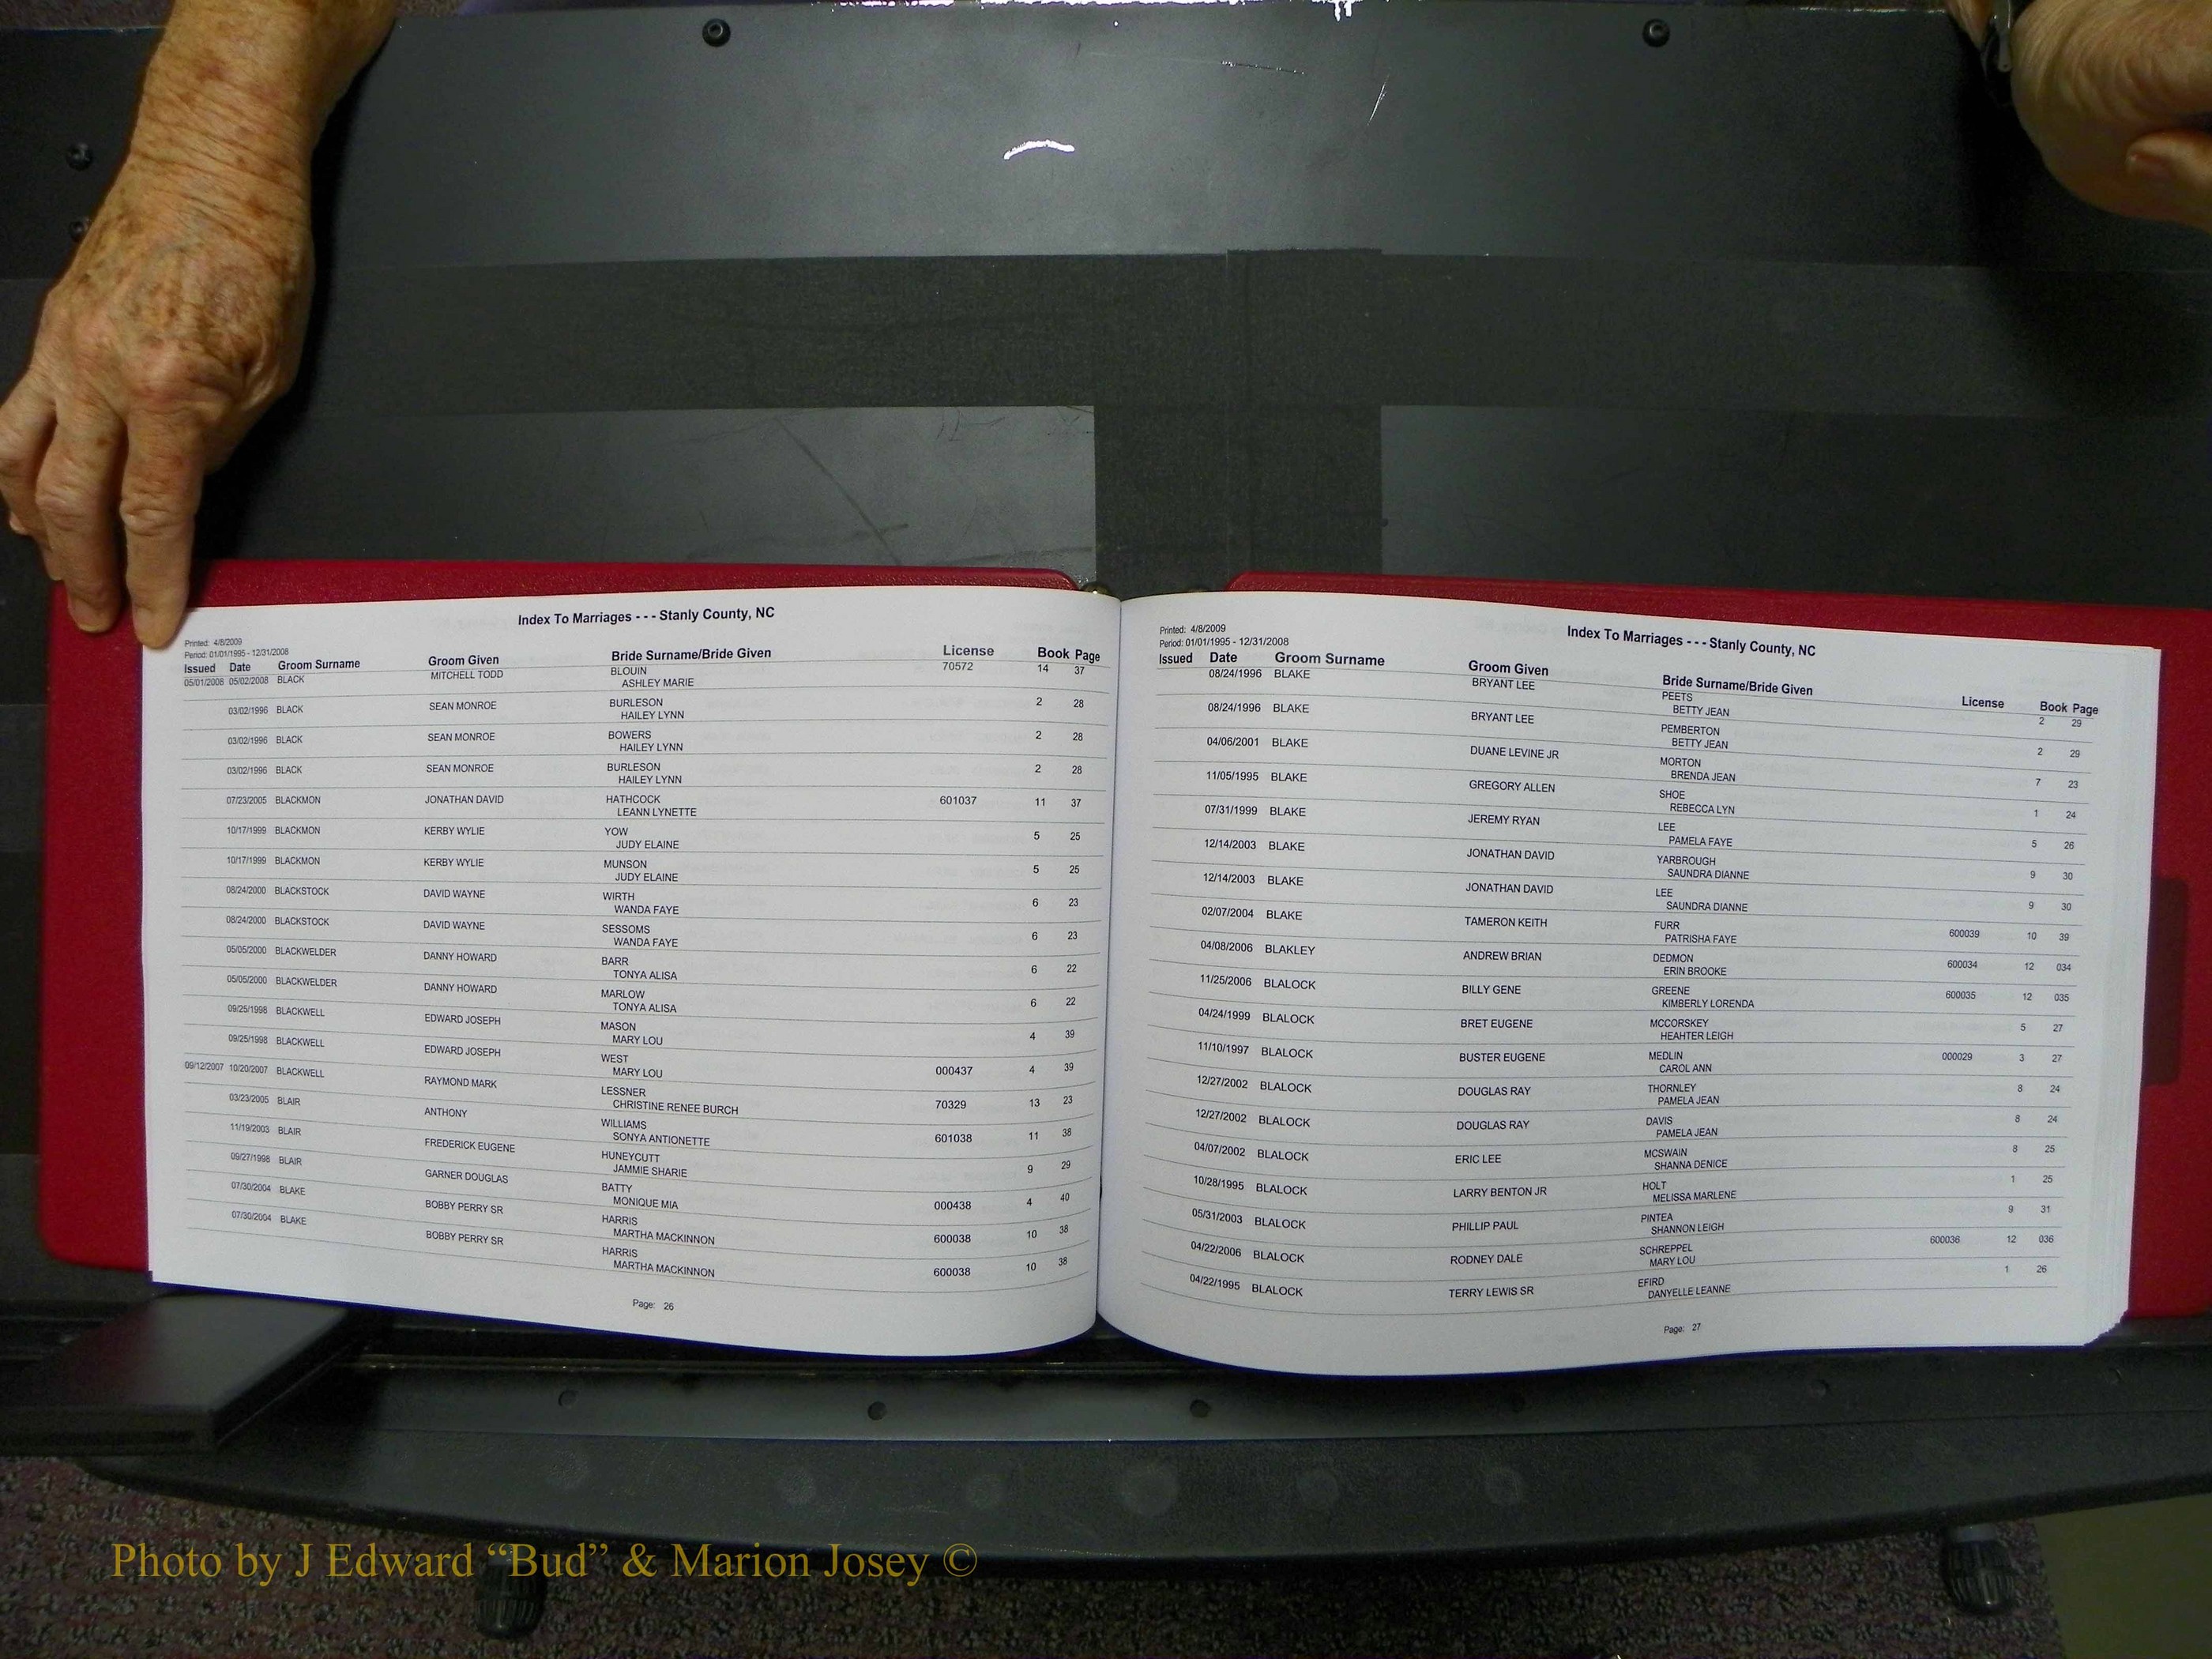 Index To Marriages - - - Stanly County, NC
Printed: 4/8/2009
Period: 01/01/1995 - 12/31/2008
Issued Date Groom Surname Groom Given Bride Surname/Bride Given License Book Page
05/01/2008 05/02/2008 BLACK MITCHELL TODD BLOUIN 70572 14 37
ASHLEY MARIE
03/02/1996 BLACK SEAN MONROE BURLESON 2 28
HAILEY LYNN
03/02/1996 BLACK SEAN MONROE BOWERS 2 28
HAILEY LYNN
03/02/1996 BLACK SEAN MONROE BURLESON 2 28
HAILEY LYNN
07/23/2005 BLACKMON JONATHAN DAVID HATHCOCK 601037 11 37
LEANN LYNETTE
10/17/1999 BLACKMON KERBY WYLIE YOW 5 25
JUDY ELAINE
10/17/1999 BLACKMON KERBY WYLIE MUNSON 5 25
JUDY ELAINE
08/24/2000 BLACKSTOCK DAVID WAYNE WIRTH 6 23
WANDA FAYE
08/24/2000 BLACKSTOCK DAVID WAYNE SESSOMS 6 23
WANDA FAYE
05/05/2000 BLACKWELDER DANNY HOWARD BARR 6 22
TONYA ALISA
05/05/2000 BLACKWELDER DANNY HOWARD MARLOW 6 22
TONYA ALISA
09/25/1998 BLACKWELL EDWARD JOSEPH MASON 4 39
MARY LOU
09/25/1998 BLACKWELL EDWARD JOSEPH WEST 000437 4 39
MARY LOU
09/12/2007 10/20/2007 BLACKWELL RAYMOND MARK LESSNER 70329 13 23
CHRISTINE RENEE BURCH
03/23/2005 BLAIR ANTHONY WILLIAMS 601038 11 38
SONYA ANTIONETTE
11/19/2003 BLAIR FREDERICK EUGENE HUNEYCUTT 9 29
JAMMIE SHARIE
09/27/1998 BLAIR GARNER DOUGLAS BATTY 000438 4 40
MONIQUE MIA
07/30/2004 BLAKE BOBBY PERRY SR HARRIS 600038 10 38
MARTHA MACKINNON
07/30/2004 BLAKE BOBBY PERRY SR HARRIS 600038 10 38
MARTHA MACKINNON
Page: 26
Index To Marriages - - - Stanly County, NC
Printed: 4/8/2009
Period: 01/01/1995 - 12/31/2008
Issued Date Groom Surname Groom Given Bride Surname/Bride Given License Book Page
08/24/1996 BLAKE BRYANT LEE PEETS 2 29
BETTY JEAN
08/24/1996 BLAKE BRYANT LEE PEMBERTON 2 29
BETTY JEAN
04/06/2001 BLAKE DUANE LEVINE JR MORTON 7 23
BRENDA JEAN
11/05/1995 BLAKE GREGORY ALLEN SHOE 1 24
REBECCA LYN
07/31/1999 BLAKE JEREMY RYAN LEE 5 26
PAMELA FAYE
12/14/2003 BLAKE JONATHAN DAVID YARBROUGH 9 30
SAUNDRA DIANNE
12/14/2003 BLAKE JONATHAN DAVID LEE 9 30
SAUNDRA DIANNE
02/07/2004 BLAKE TAMERON KEITH FURR 600039 10 39
PATRISHA FAYE
04/08/2006 BLAKLEY ANDREW BRIAN DEDMON 600034 12 034
ERIN BROOKE
11/25/2006 BLALOCK BILLY GENE GREENE 600035 12 035
KIMBERLY LORENDA
04/24/1999 BLALOCK BRET EUGENE MCCORSKEY 5 27
HEAHTER LEIGH
11/10/1997 BLALOCK BUSTER EUGENE MEDLIN 000029 3 27
CAROL ANN
12/27/2002 BLALOCK DOUGLAS RAY THORNLEY 8 24
PAMELA JEAN
12/27/2002 BLALOCK DOUGLAS RAY DAVIS 8 24
PAMELA JEAN
04/07/2002 BLALOCK ERIC LEE MCSWAIN 8 25
SHANNA DENICE
10/28/1995 BLALOCK LARRY BENTON JR HOLT 1 25
MELISSA MARLENE
05/31/2003 BLALOCK PHILLIP PAUL PINTEA 9 31
SHANNON LEIGH
04/22/2006 BLALOCK RODNEY DALE SCHREPPEL 600036 12 036
MARY LOU
04/22/1995 BLALOCK TERRY LEWIS SR EFIRD 1 26
DANYELLE LEANNE
Page: 27
Photo by J Edward “Bud” & Marion Josey ©